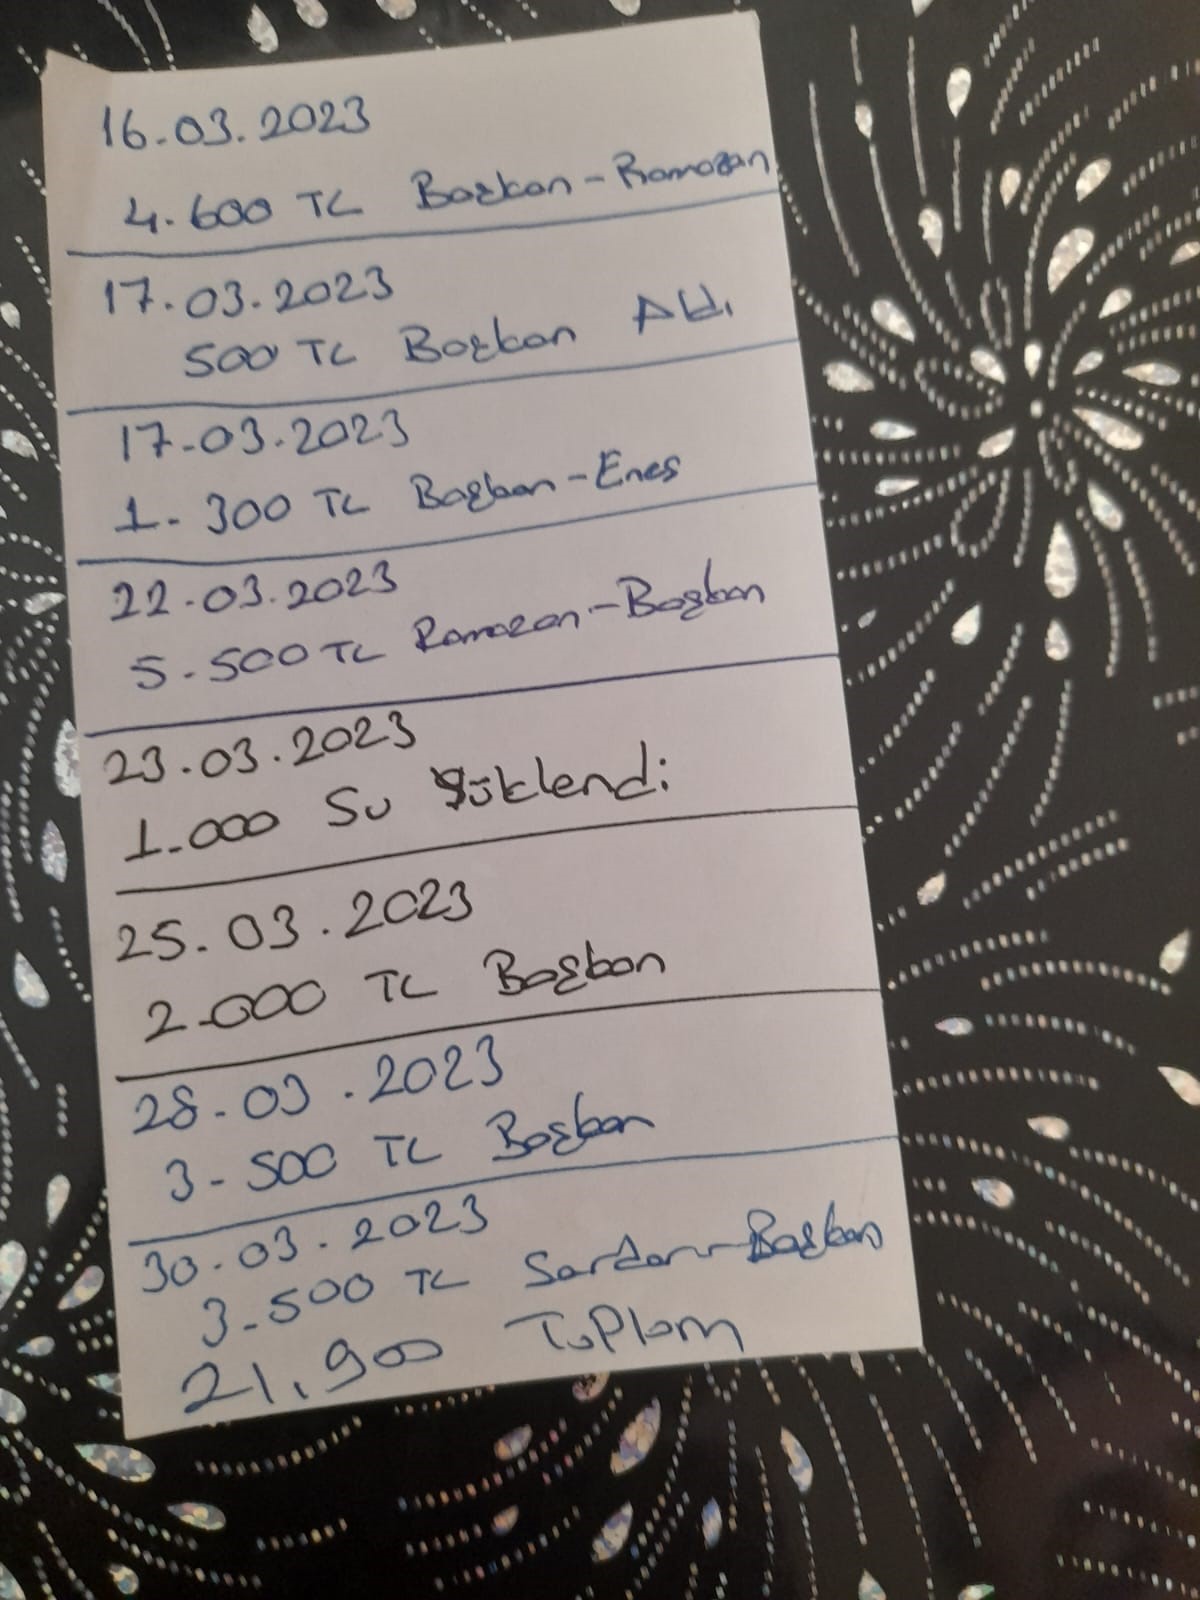 16.03.2023
4.600 TL Başkan-Ramazan
17.03.2023
500 TL Başkan Aldı
17.03.2023
1.300 TL Başkan-Enes
22.03.2023
5.500 TL Ramazan-Başkan
23.03.2023
1.000 Su Yüklendi
25.03.2023
2.000 TL Başkan
28.03.2023
3.500 TL Başkan
30.03.2023
3.500 TL Serdar-Başkan
21,900 Toplam